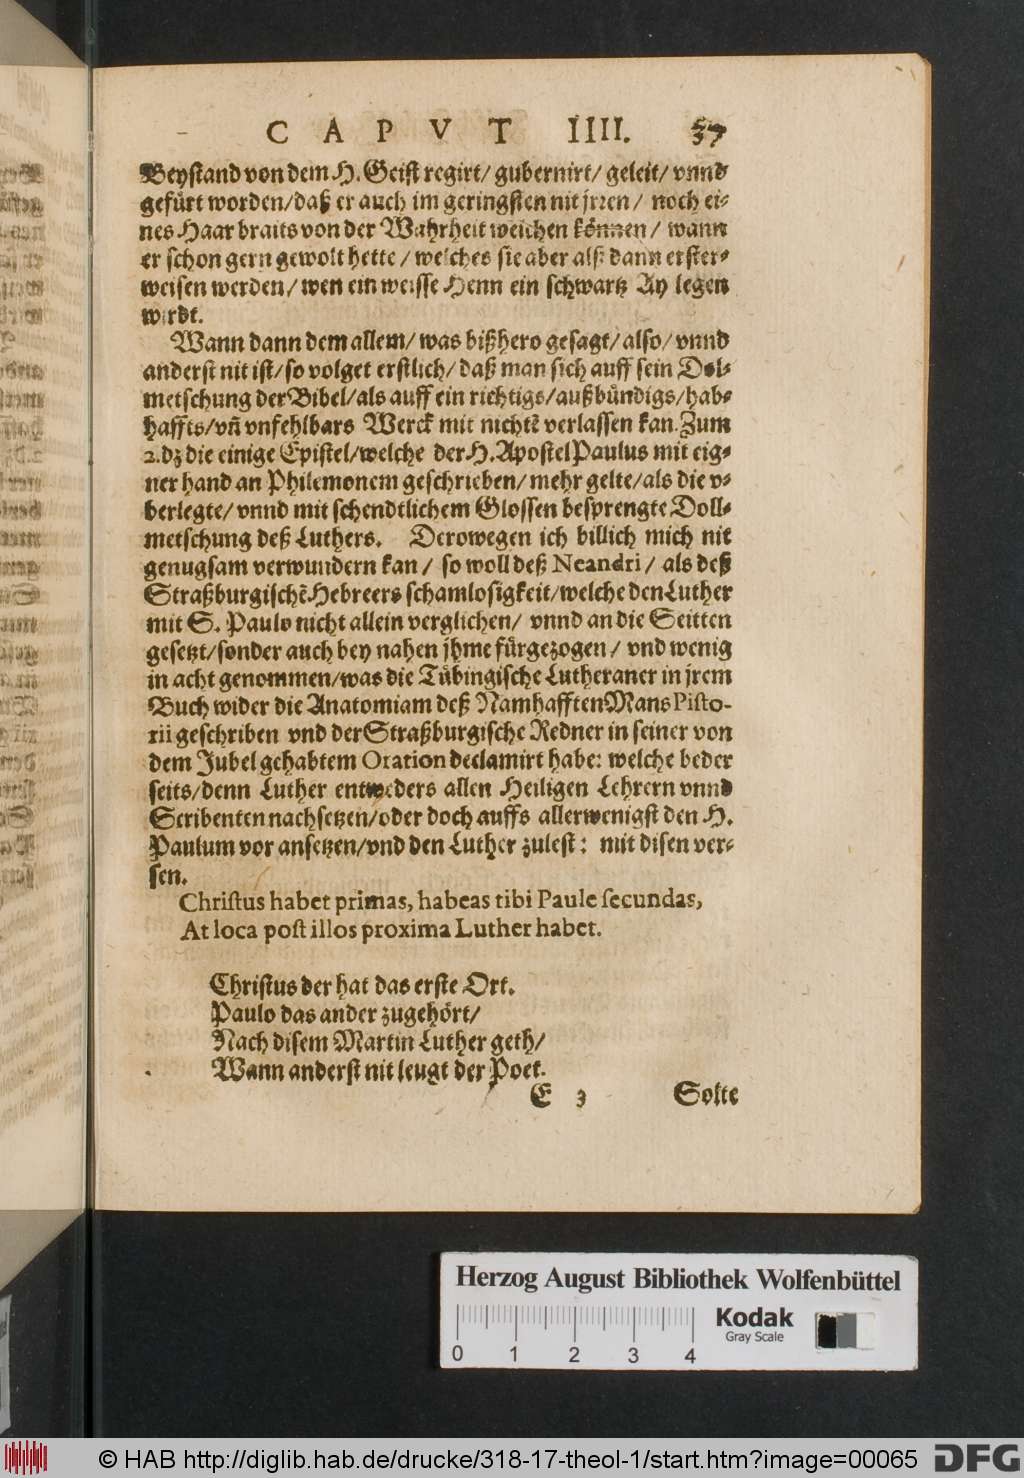 CAPVT IIII. 37
Beystand von dem H. Geist regirt/ gubernirt/ geleit/ vnnd
gefürt worden/daß er auch im geringsten nit jrren/ noch ei-
nes Haar braits von der Wahrheit weichen können/ wann
er schon gern gewolt hette/ welches sie aber alß dann erster-
weisen werden/ wen ein weisse Henn ein schwartz Ay legen
wirdt.
Wann dann dem allem/ was bißhero gesagt/ also/ vnnd
anderst nit ist/ so volget erstlich/ daß man sich auff sein Dol-
metschung der Bibel/als auff ein richtigs/außbündigs/hab-
haffts/vñ vnfehlbars Werck mit nichtē verlassen kan. Zum
2.dz die einige Epistel/welche der H. Apostel Paulus mit eig-
ner hand an Philemonem geschrieben/ mehr gelte/als die v-
berlegte/ vnnd mit schendtlichem Glossen besprengte Doll-
metschung deß Luthers. Derowegen ich billich mich nit
genugsam verwundern kan/ so woll deß Neandri/ als deß
Straßburgischē Hebreers schamlosigkeit/welche den Luther
mit S. Paulo nicht allein verglichen/ vnnd an die Seitten
gesetzt/sonder auch bey nahen jhme fürgezogen/ vnd wenig
in acht genommen/was die Tübingische Lutheraner in jrem
Buch wider die Anatomiam deß Namhafften Mans Pisto-
rii geschriben vnd der Straßburgische Redner in seiner von
dem Jubel gehabtem Oration declamirt habe: welche beder
seits/denn Luther entweders allen Heiligen Lehrern vnnd
Scribenten nachsetzen/oder doch auffs allerwenigst den H.
Paulum vor ansetzen/vnd den Luther zulest: mit disen ver-
sen.
Christus habet primas, habeas tibi Paule secundas,
At loca post illos proxima Luther habet.
Christus der hat das erste Ort.
Paulo das ander zugehört/
Nach disem Martin Luther geth/
Wann anderst nit leugt der Poet.
E 3 Solte
Herzog August Bibliothek Wolfenbüttel
Kodak
Gray Scale
0 1 2 3 4
© HAB http://diglib.hab.de/drucke/318-17-theol-1/start.htm?image=00065 DFG